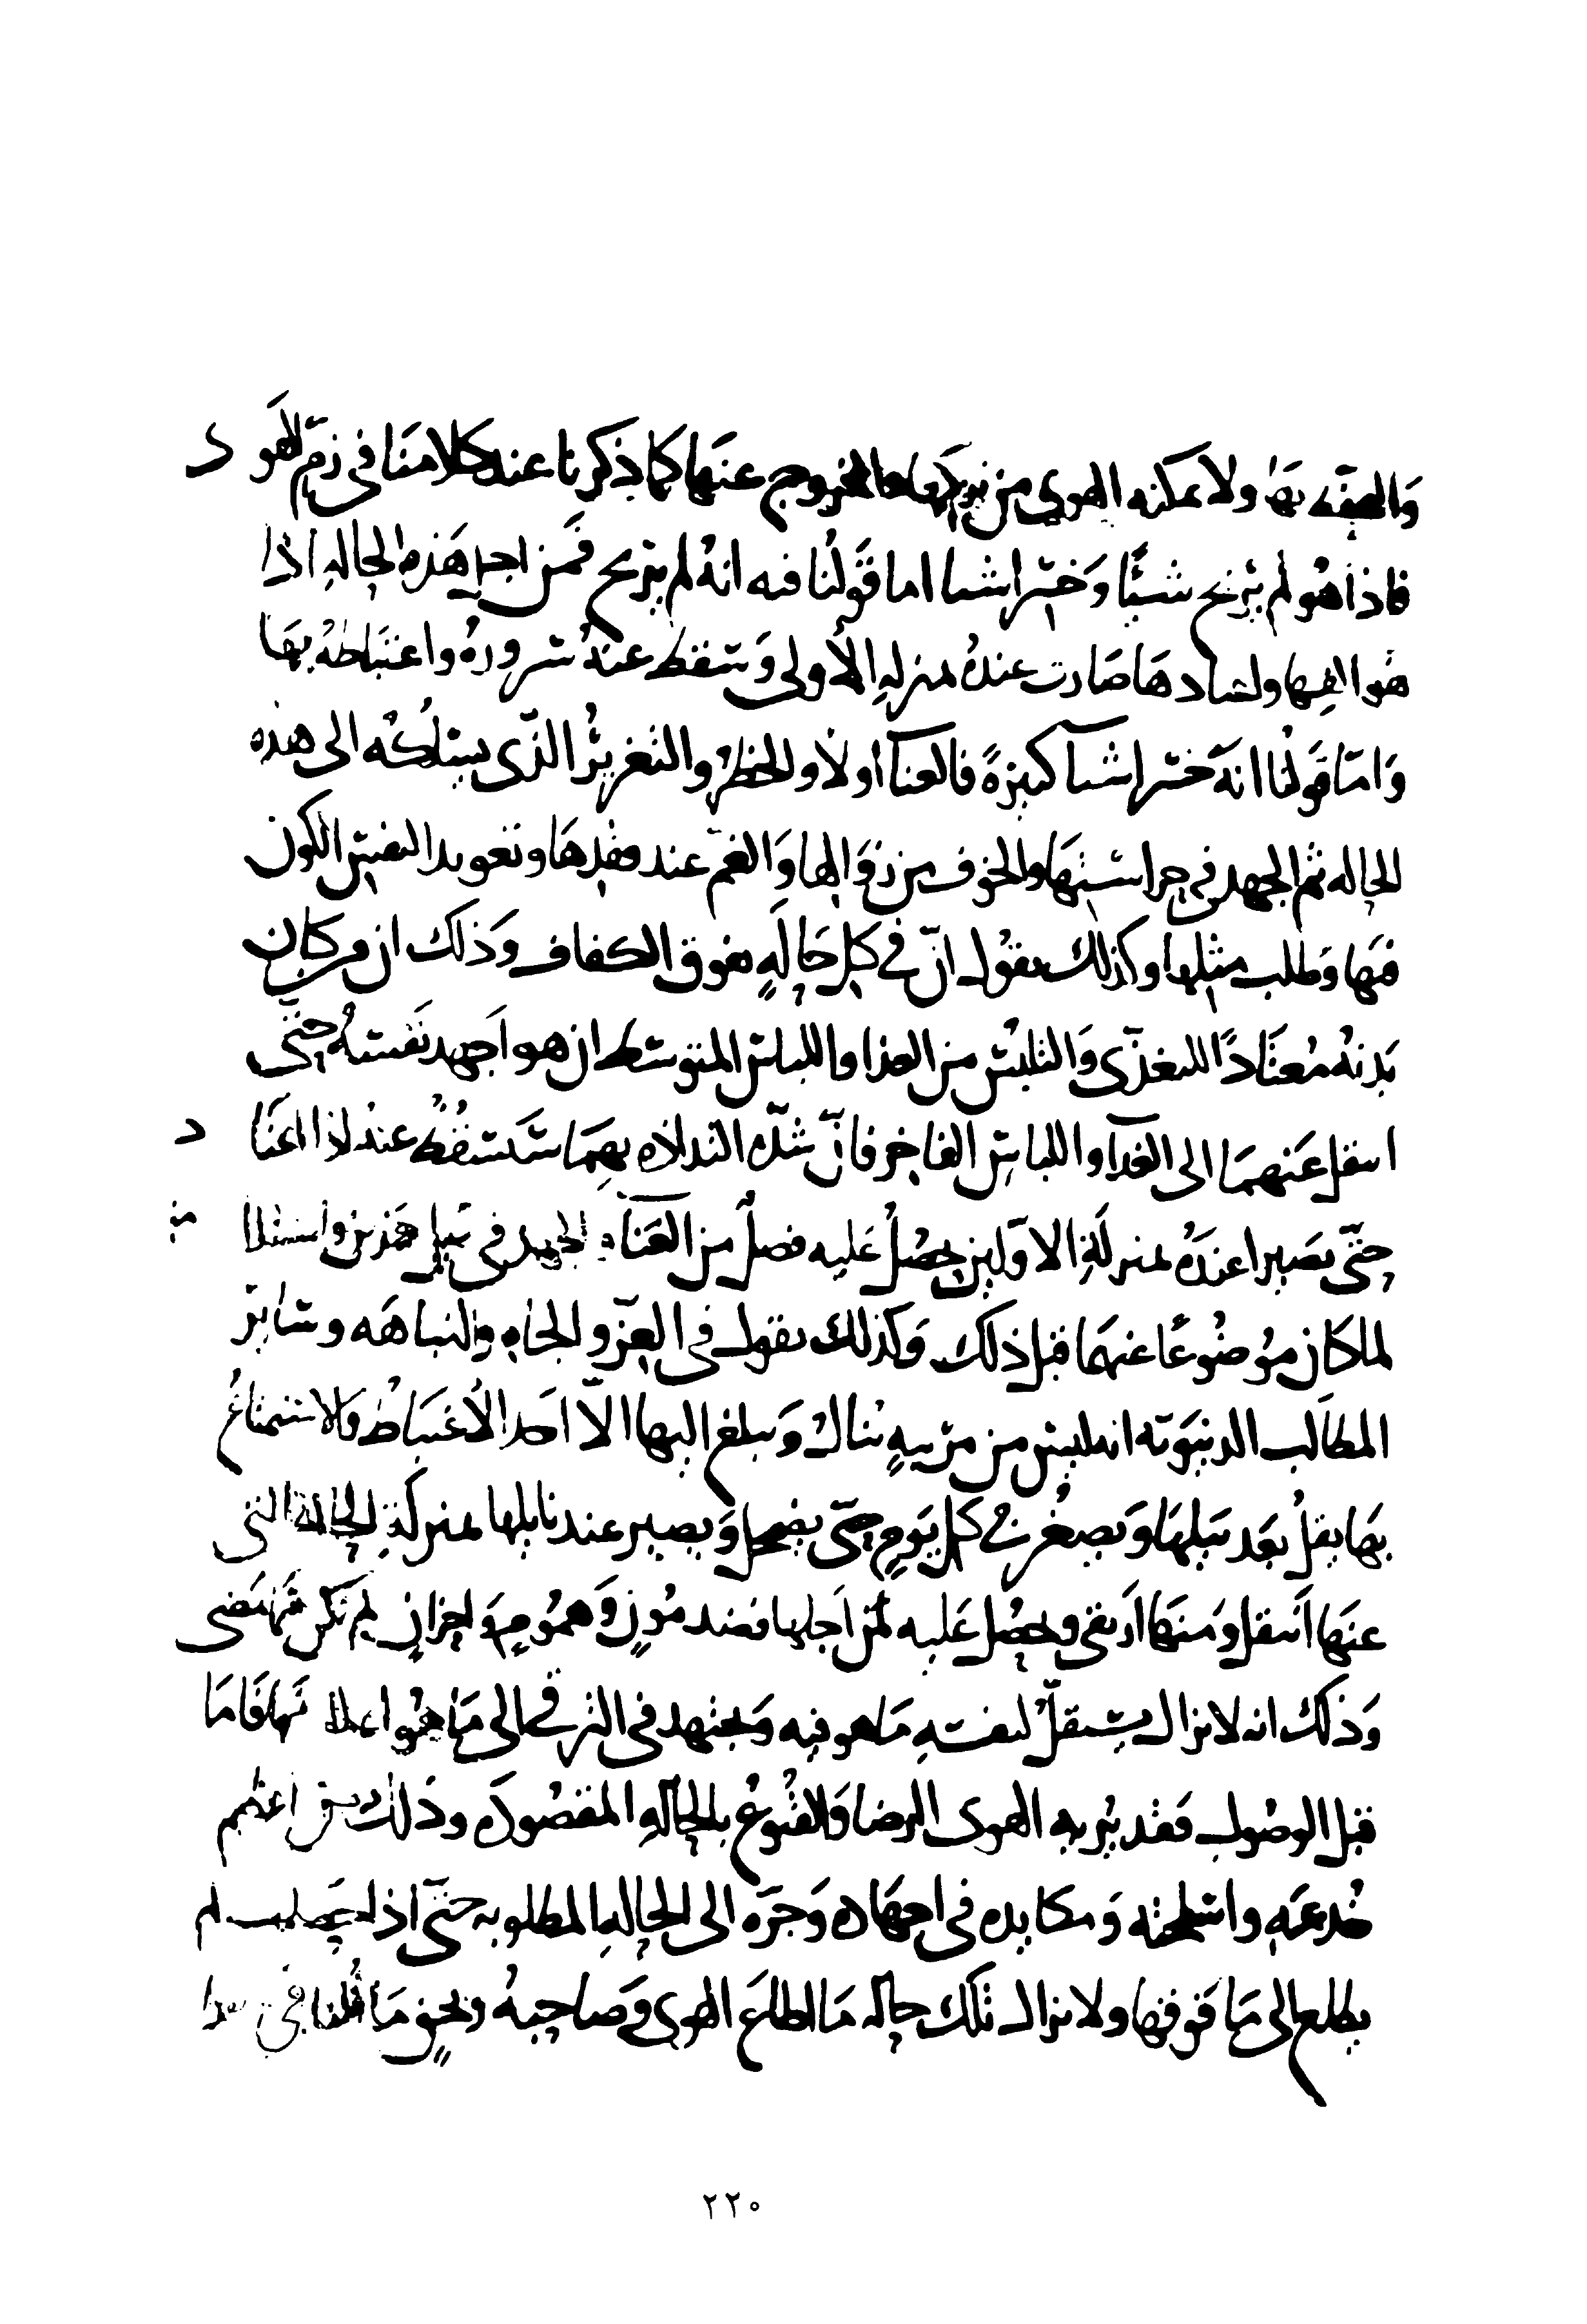 والمقه بها ولا يمكنه الهوى من تركها والخروج عنها كما ذكرنا عند كلامنا في زم الهوى د
فاذا هو لم يربح شيئا وخسر اشيا اما قولنا فيه انه لم يربح فمن اجل هذه الحاله اذا
هو الفها واعتادها صارت عنده بمنزله الأولى وسقط عنه سروره واغتباطه بها
واما قولنا انه خسر اشيا كثيرة فالعنا اولا والخطر والتغرير الذي يسلكه الى هذه
الحاله ثم الجهد في حراستها والخوف من زوالها والغم عند فقدها وتعويد النفس الكون
فيها وطلب مثلها وكذلك نقول ان في كل حالة فوق الكفاف وذلك ان من كان
بدنه معتادا للتغذي والتلبس من الغذا واللباس المتوسط ان هو اجهد نفسه حتى
انتقل عنهما الى الغذآ واللباس الفاخر فان شدة التذاذه بهما ستسقط عنه اذا اعتا د
حتى يصيرا عنده بمنزلة الاولين ويحصل عليه فضل من العنآ والجهد في نيل هذين واستدا مـ
لما كان موضوعا عنهما قبل ذلك وكذلك نقول في العز والجاه والنباهه وسائر
المطالب الدنيوية انه ليس من مرتبة تنال ويبلغ اليها الا احد الاغتباط والاستمتاع
بها يقل بعد نيلها ويصغر في كل يوم حتى يضمحل ويصير عند نايلها بمنزلة الحالة التي
عنها انتقل ومنها ارتقى ويحصل عليه من اجلها فضل مون وهموم واحزان لم تكن فيما مضى
وذلك انه لا يزال يستقل لنفسه ما هو فيه ويجتهد في الترقي الى ما هو اعلا منها فاما
قبل الوصول فقد يريه الهوى الرضا والقنوع بالحالة المقصودة وذلك من اعظم
خدعه واسلحته ومكايده في اجهاده وجره الى الحاله المطلوبه حتى اذا حصلت لم
يطلع الى ما فوقها ولا يزال تلك حاله ما اطاع الهوى وصاحبه ونحو ما قلنا في هذا
٢٢٠